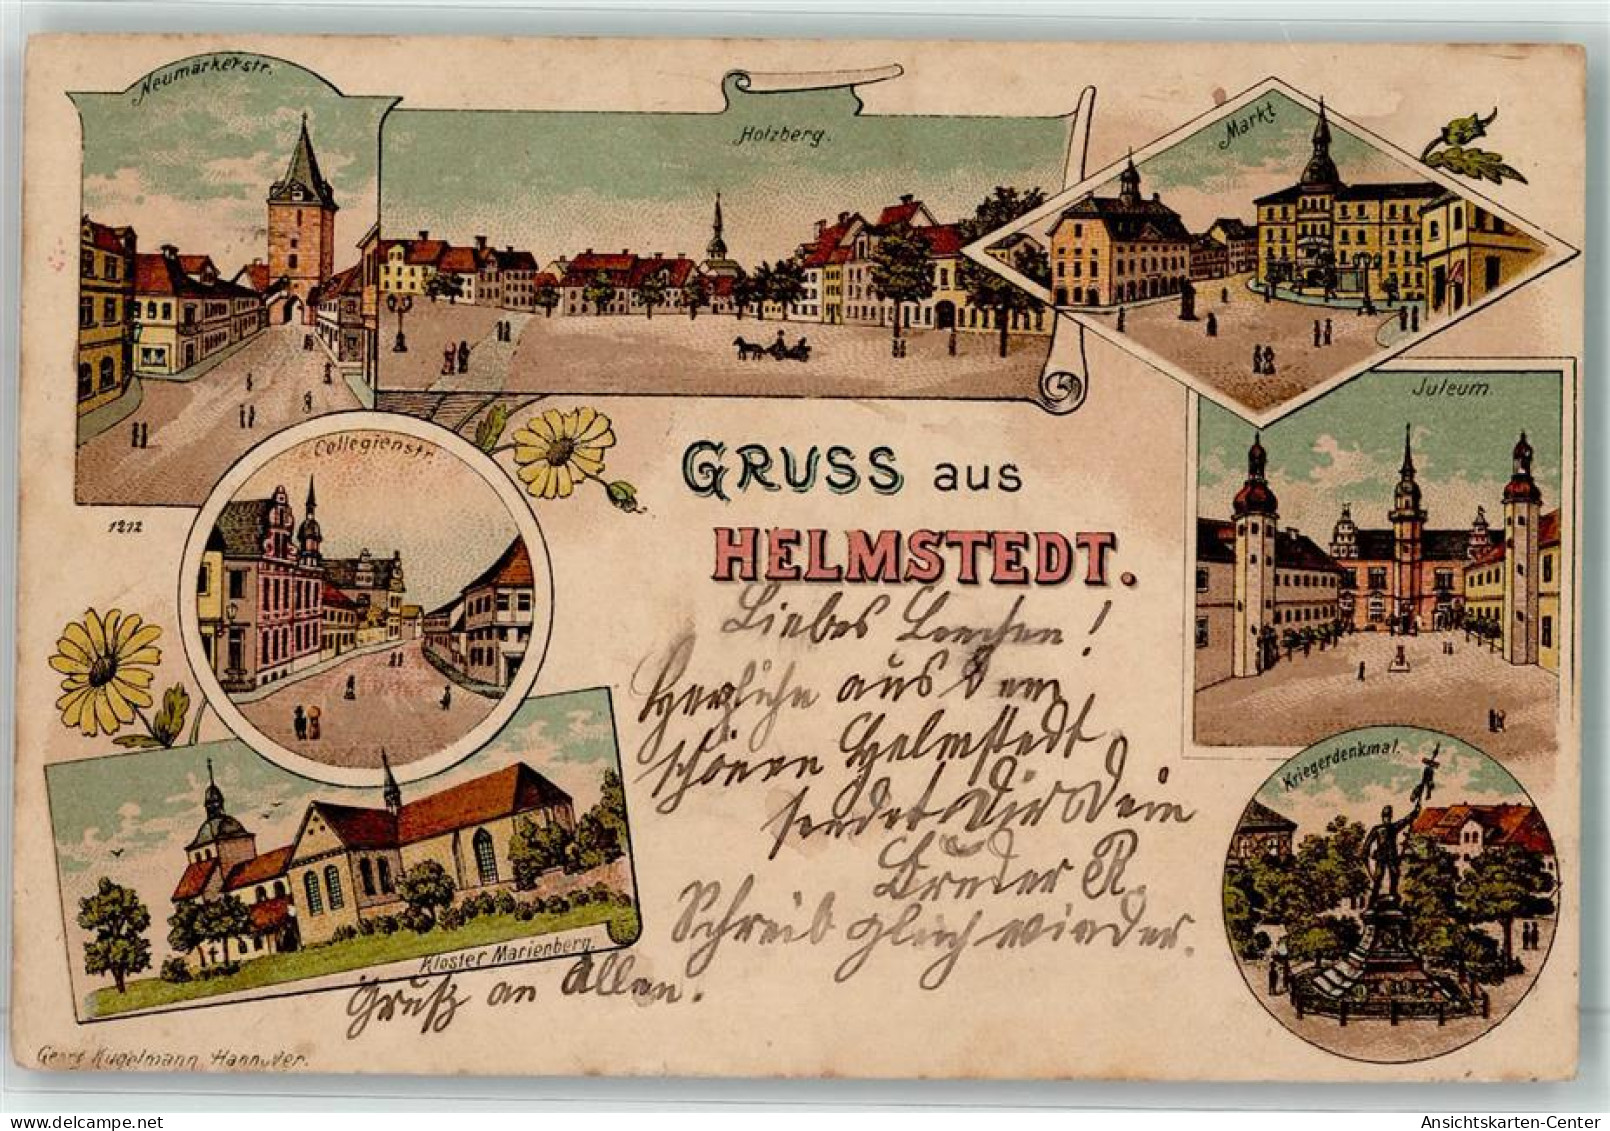 Neumärkerstr.
Holzberg.
Markt
Juleum.
Collegienstr.
1212
GRUSS aus
HELMSTEDT.
Kriegerdenkmal.
Kloster Marienberg.
Liebes Lenchen!
Herzliche aus dem
schönen Helmstedt
sendet Dir Dein
Bruder R.
Schreib gleich wieder.
Gruß an Allen.
Georg Kugelmann, Hannover.
Ansichtskarten-Center